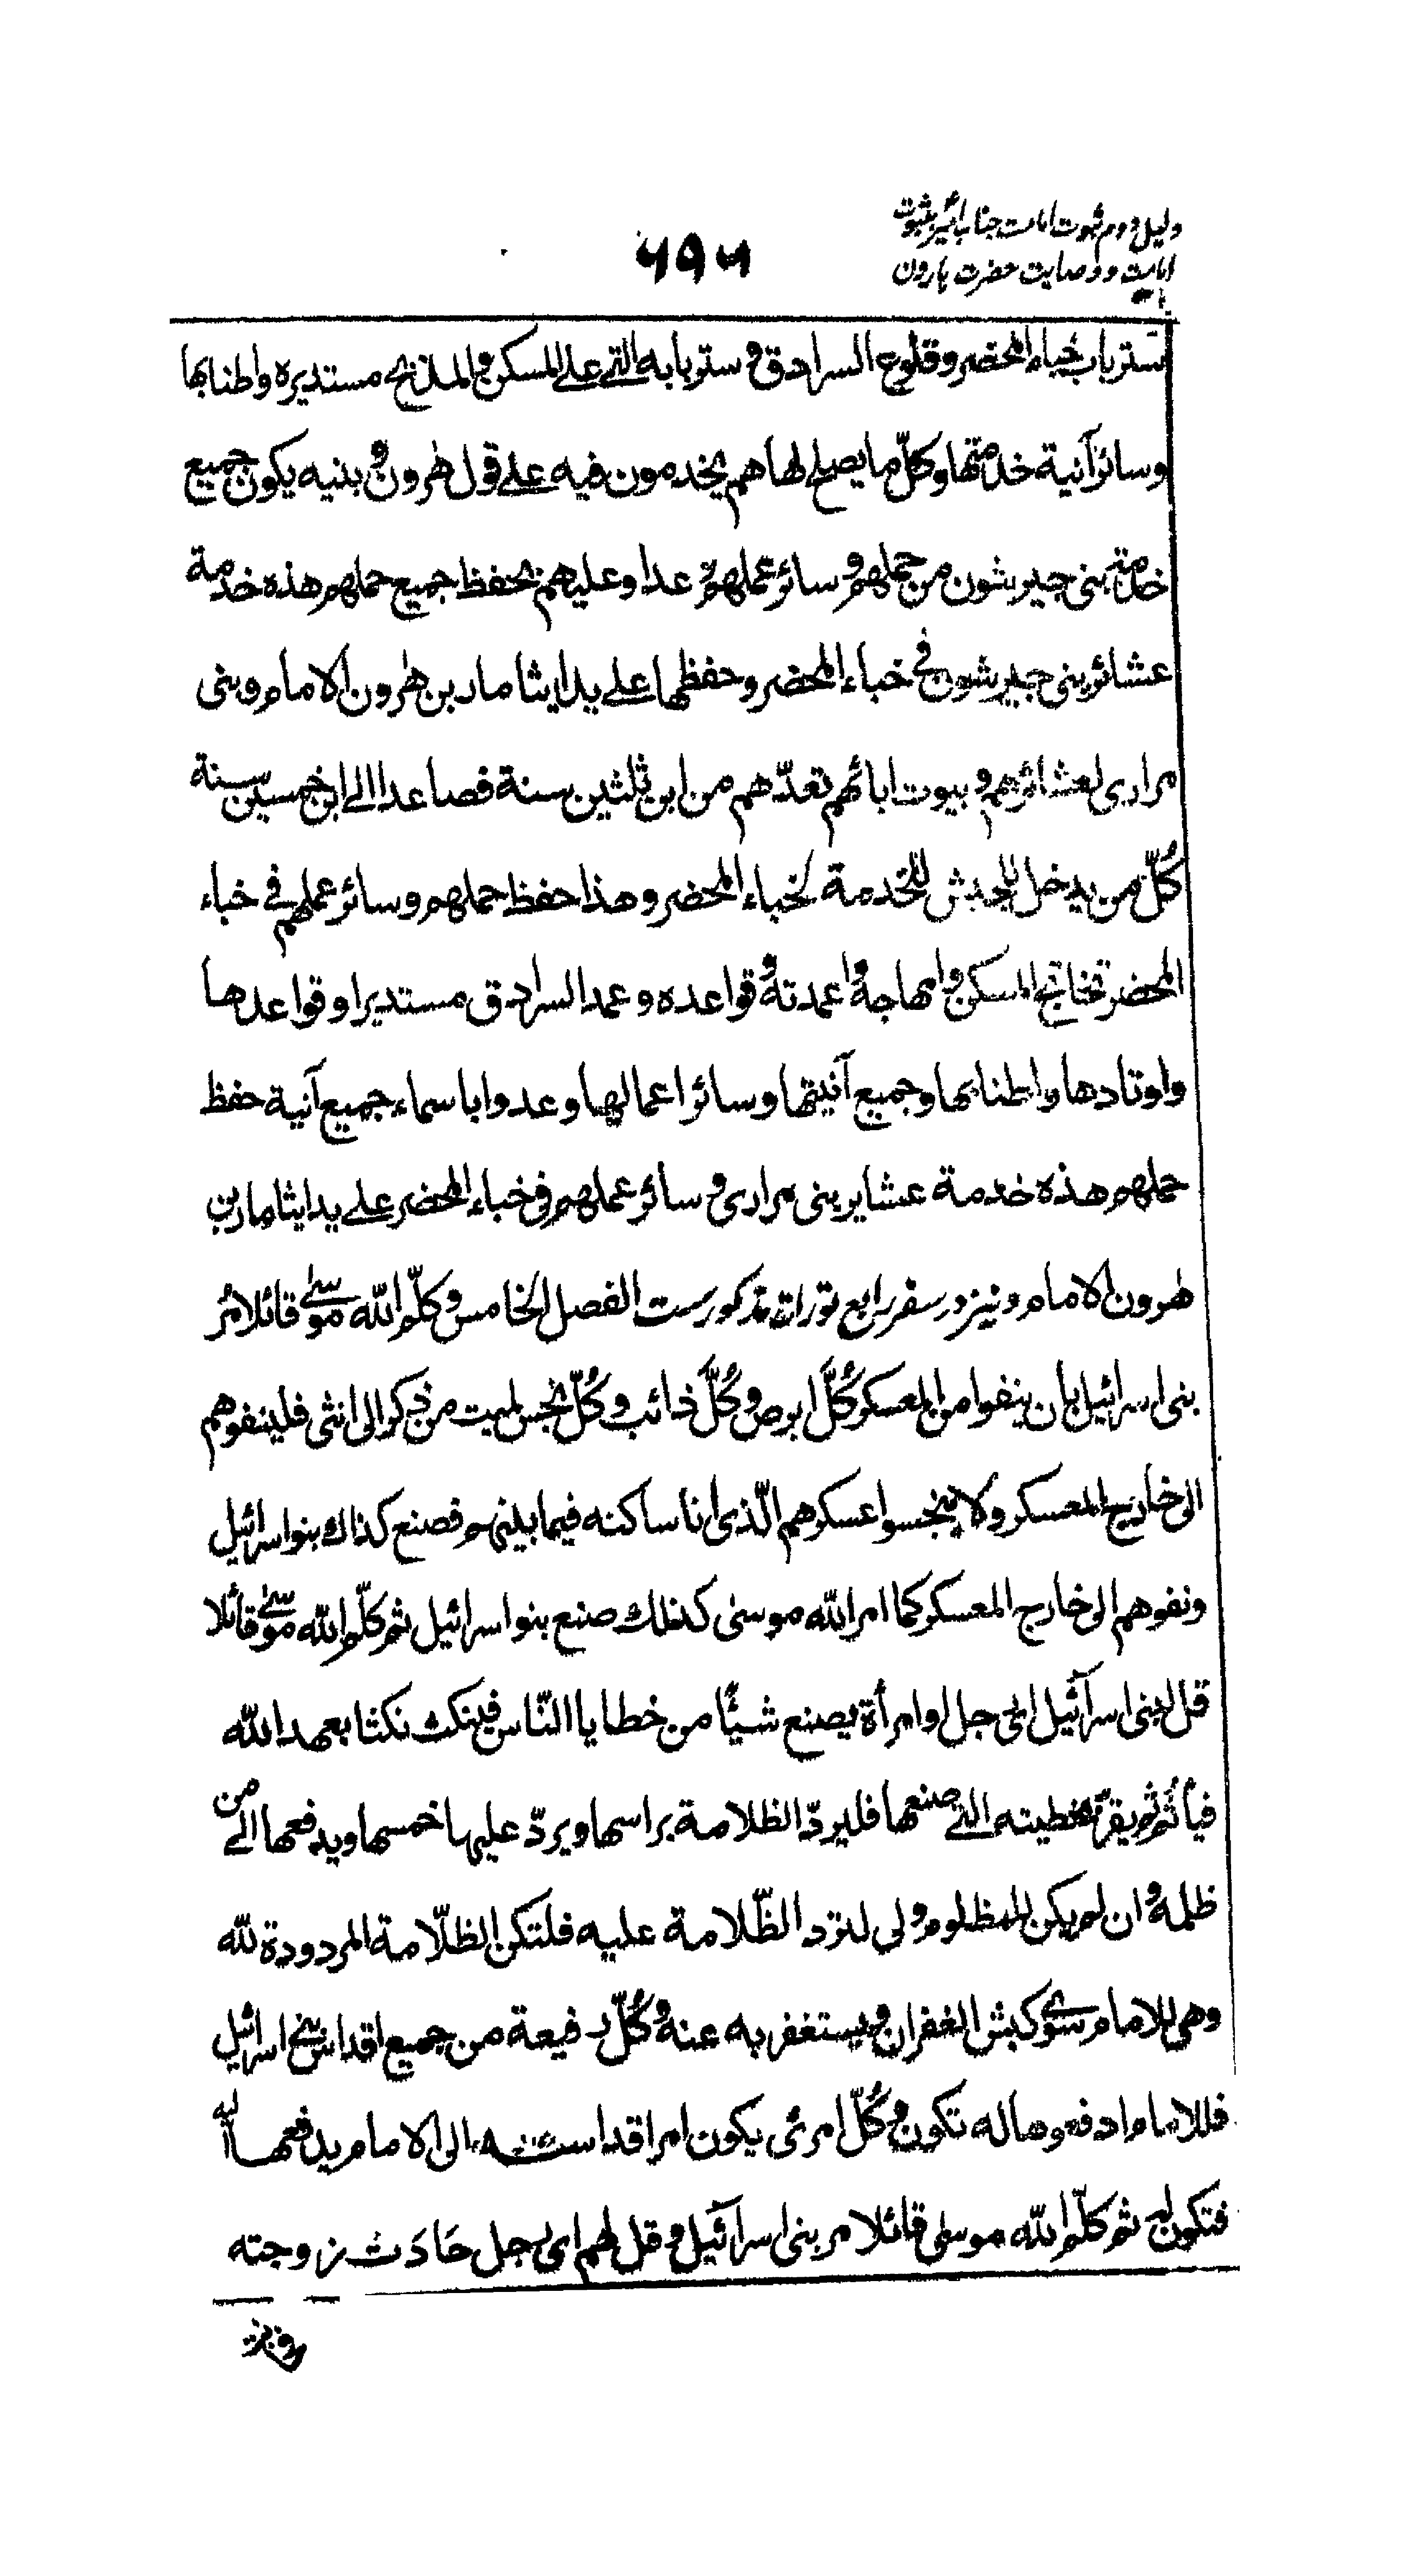 دلیل دوم ثبوت امامت جناب امیر بثبوت
۶۹۶
امامت و وصایت حضرت هارون
ستر باب خباء المحضر وقلوع السرادق وستر بابه التی علی المسکن والمذبح مستدیره واطنابها
وسائر آنیة خدمتها وکلّ ما یصلح لها هم یخدمون فیه علی قول هرون وبنیه یکون جمیع
خدمة بنی جیرشون من حملهم وسائر عملهم عدا وعلیهم بحفظ جمیع حملهم هذه خدمة
عشائر بنی جیرشون فی خباء المحضر وحفظها علی ید ایثامار بن هرون الامام وبنی
مراری لعشائرهم وبیوت ابائهم تعدّهم من ابن ثلثین سنة فصاعدا الی ابن خمسین سنة
کُلّ من یدخل للجیش للخدمة لخباء المحضر وهذا حفظ حملهم وسائر عملهم فی خباء
المحضر تخاتج المسکن وامهاجهُ واعمدتهُ وقواعده وعمد السرادق مستدیرا وقواعدها
واوتادها واطنابها وجمیع آنیتها وسائر اعمالها وعدوا باسماء جمیع آنیة حفظ
حملهم هذه خدمة عشایر بنی مراری وسائر عملهم فی خباء المحضر علی ید ایثامار بن
هرون الامام ونیز در سفر رابع توراة مذکورست الفصل الخامس وکلّم الله موسی قائلا مُر
بنی اسرائیل بان ینفوا من المعسکر کُلَّ ابرص وکُلَّ ذائب وکُلَّ نجس لمیت من ذکر الی انثی فلینفوهم
الی خارج المعسکر ولا ینجسوا عسکرهم الّذی انا ساکنه فیما بینهم فصنع کذلك بنو اسرائیل
ونفوهم الی خارج المعسکر کما امر الله موسی کذلك صنع بنو اسرائیل ثم کلّم الله موسی قائلا
قل لبنی اسرآئیل ای رجل او امرأة یصنع شیئًا من خطایا النّاس فینکث نکثا بعهد الله
فیأثم ثم یقرّ بخطیته التی صنعها فلیردّ الظلامة براسها ویردّ علیها خمسها ویدفعها الی من
ظلمهُ وان لم یکن للمظلوم ولی لترد الظّلامة علیه فلتکن الظلّامة المردودة للّه
وهی للامام سوی کبش الغفران ویستغفر به عنهُ وکُلّ رفیعة من جمیع اقداس بنی اسرائیل
فللامام ادفعوها له تکون وکُلّ امرئی یکون امر اقداسه الی الامام یدفعها الیه
فتکون له ثم کلّم الله موسی قائلا مر بنی اسرآئیل وقل لهم ای رجل حَادَث زوجته